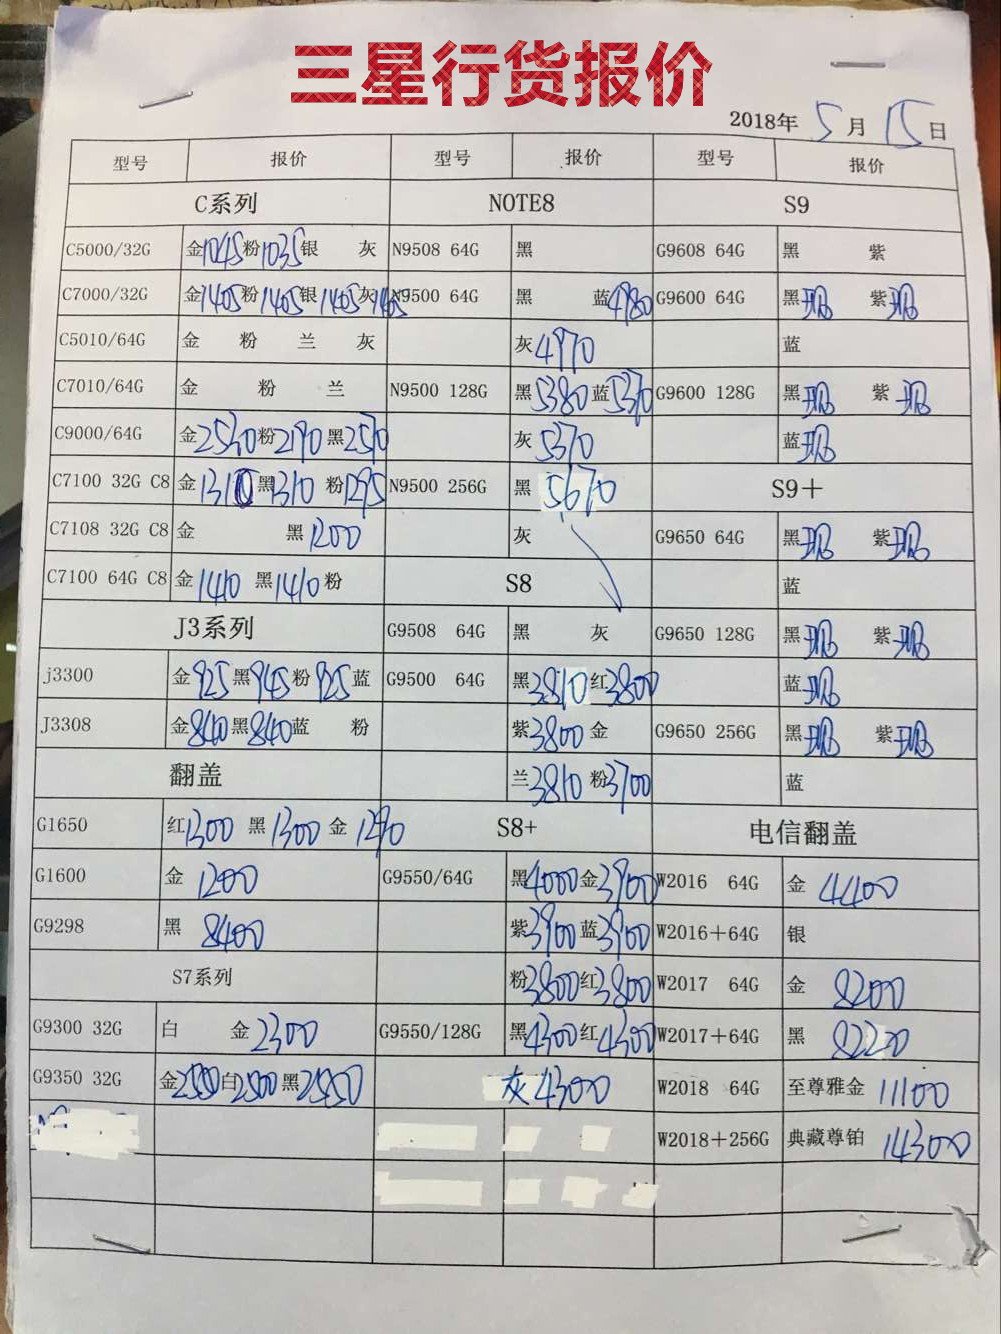 三星行货报价
2018年 5月 15日
型号 报价 型号 报价 型号 报价
C系列 NOTE8 S9
C5000/32G 金1045 粉1035 银 灰 N9508 64G 黑 G9608 64G 黑 紫
C7000/32G 金1405 粉1405 银1405 灰1405 N9500 64G 黑 蓝4980 G9600 64G 黑 紫
C5010/64G 金 粉 兰 灰 灰4970 蓝
C7010/64G 金 粉 兰 N9500 128G 黑5380 蓝5370 G9600 128G 黑 紫
C9000/64G 金 粉 黑 灰5370 蓝
C7100 32G C8 金1310 黑1310 粉1295 N9500 256G 黑5670 S9+
C7108 32G C8 金 黑1200 灰 G9650 64G 黑 紫
C7100 64G C8 金1410 黑1410 粉 S8 蓝
J3系列 G9508 64G 黑 灰 G9650 128G 黑 紫
j3300 金925 黑945 粉925 蓝 G9500 64G 黑3810 红3800 蓝
J3308 金840 黑840 蓝 粉 紫3800 金 G9650 256G 黑 紫
翻盖 兰3810 粉3700 蓝
G1650 红1300 黑1300 金1290 S8+ 电信翻盖
G1600 金1200 G9550/64G 黑4000 金3900 W2016 64G 金4400
G9298 黑8400 紫3900 蓝3900 W2016+64G 银
S7系列 粉3800 红3800 W2017 64G 金8200
G9300 32G 白 金2300 G9550/128G 黑4300 红4300 W2017+64G 黑8220
G9350 32G 金 白2500 黑 灰4300 W2018 64G 至尊雅金 11100
W2018+256G 典藏尊铂 14300